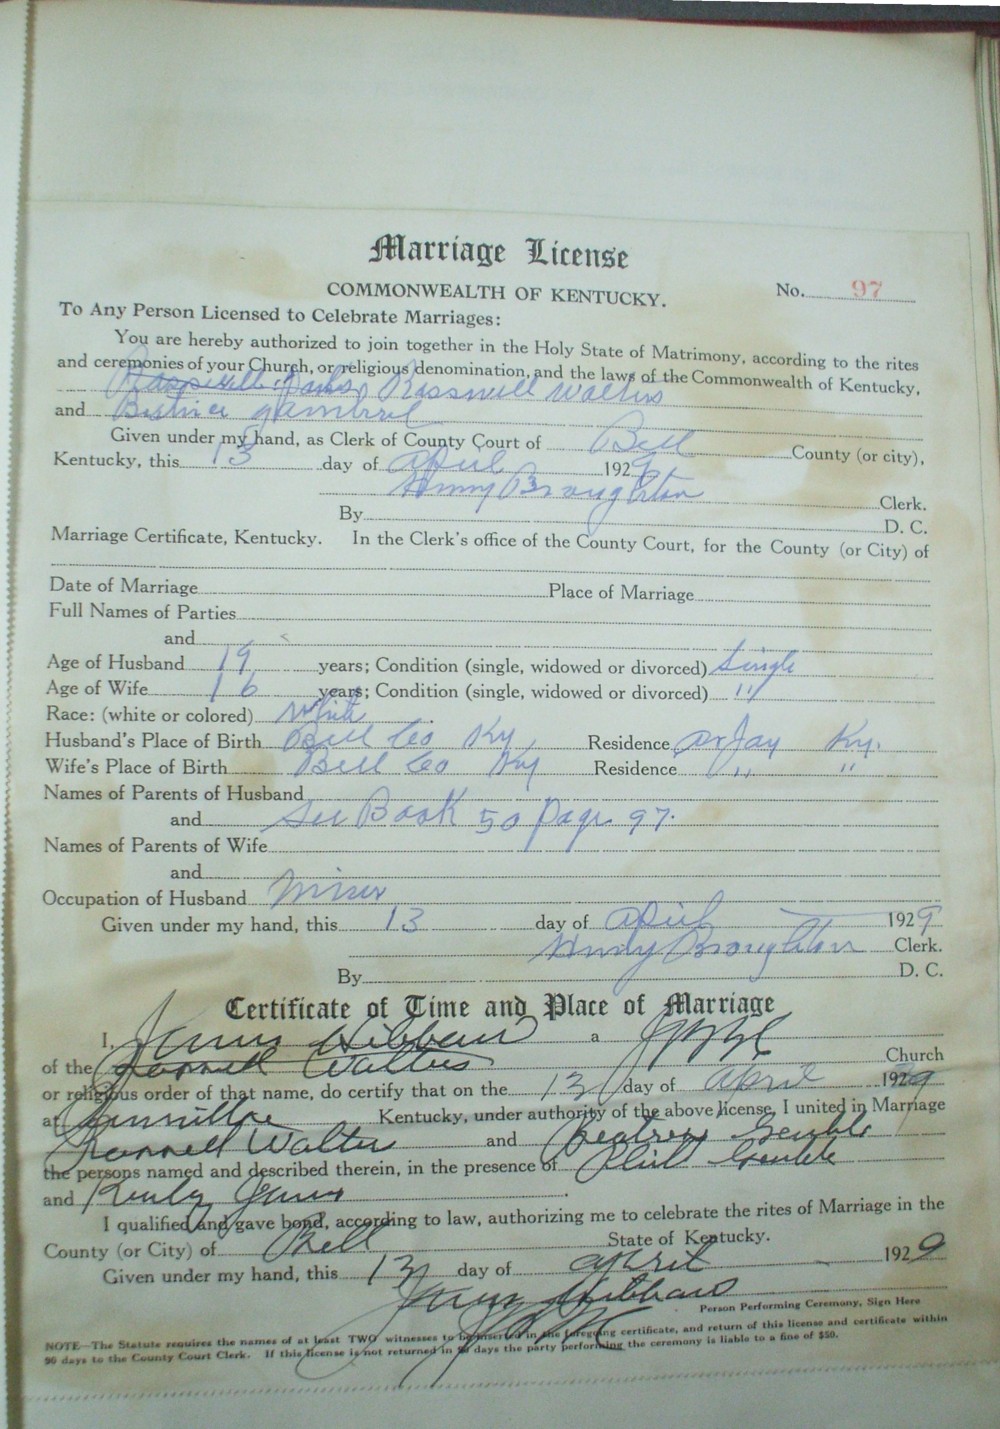 Marriage License
COMMONWEALTH OF KENTUCKY.
No. 97
To Any Person Licensed to Celebrate Marriages:
You are hereby authorized to join together in the Holy State of Matrimony, according to the rites
and ceremonies of your Church, or religious denomination, and the laws of the Commonwealth of Kentucky,
Rasswell Walters
and Gambrel
Given under my hand, as Clerk of County Court of Bell County (or city),
Kentucky, this 13 day of April 1929
Broughton Clerk.
By D. C.
Marriage Certificate, Kentucky. In the Clerk's office of the County Court, for the County (or City) of
Date of Marriage Place of Marriage
Full Names of Parties
and
Age of Husband 19 years; Condition (single, widowed or divorced) Single
Age of Wife 16 years; Condition (single, widowed or divorced) "
Race: (white or colored) White
Husband's Place of Birth Bell Co Ky Residence Ky.
Wife's Place of Birth Bell Co Ky Residence " "
Names of Parents of Husband
and See Book 50 Page 97.
Names of Parents of Wife
and
Occupation of Husband Miner
Given under my hand, this 13 day of April 1929
Broughton Clerk.
By D. C.
Certificate of Time and Place of Marriage
I, James Hibbard a
of the Walters Church
or religious order of that name, do certify that on the 13 day of April 1929
at Kentucky, under authority of the above license, I united in Marriage
Walter and
the persons named and described therein, in the presence of
and
I qualified and gave bond, according to law, authorizing me to celebrate the rites of Marriage in the
County (or City) of Bell State of Kentucky.
Given under my hand, this 13 day of April 1929
James Hibbard
Person Performing Ceremony, Sign Here
NOTE—The Statute requires the names of at least TWO witnesses to be inserted in the foregoing certificate, and return of this license and certificate within
90 days to the County Court Clerk. If this license is not returned in 90 days the party performing the ceremony is liable to a fine of $50.